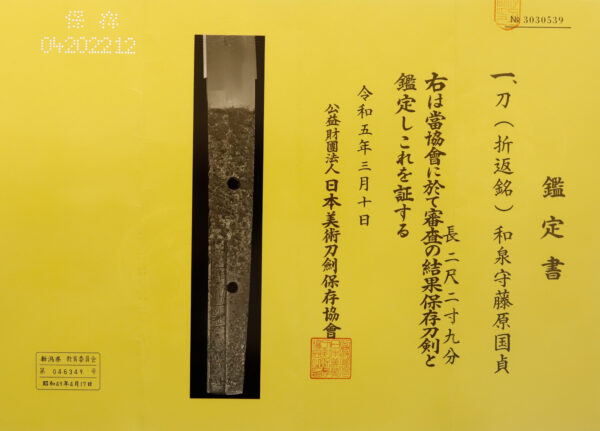 № 3030539
鑑定書
一、刀（折返銘）和泉守藤原国貞
長二尺二寸九分
右は當協會に於て審査の結果保存刀剣と
鑑定しこれを証する
令和五年三月十日
公益財團法人日本美術刀劍保存協會
保存
04202212
新潟県教育委員会
第 046349 号
昭和49年4月17日